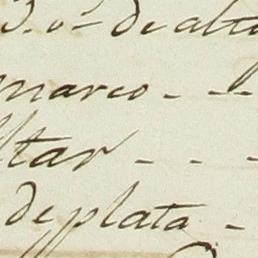 3. o. de alto
marco - - -
ltar - - -
de plata -